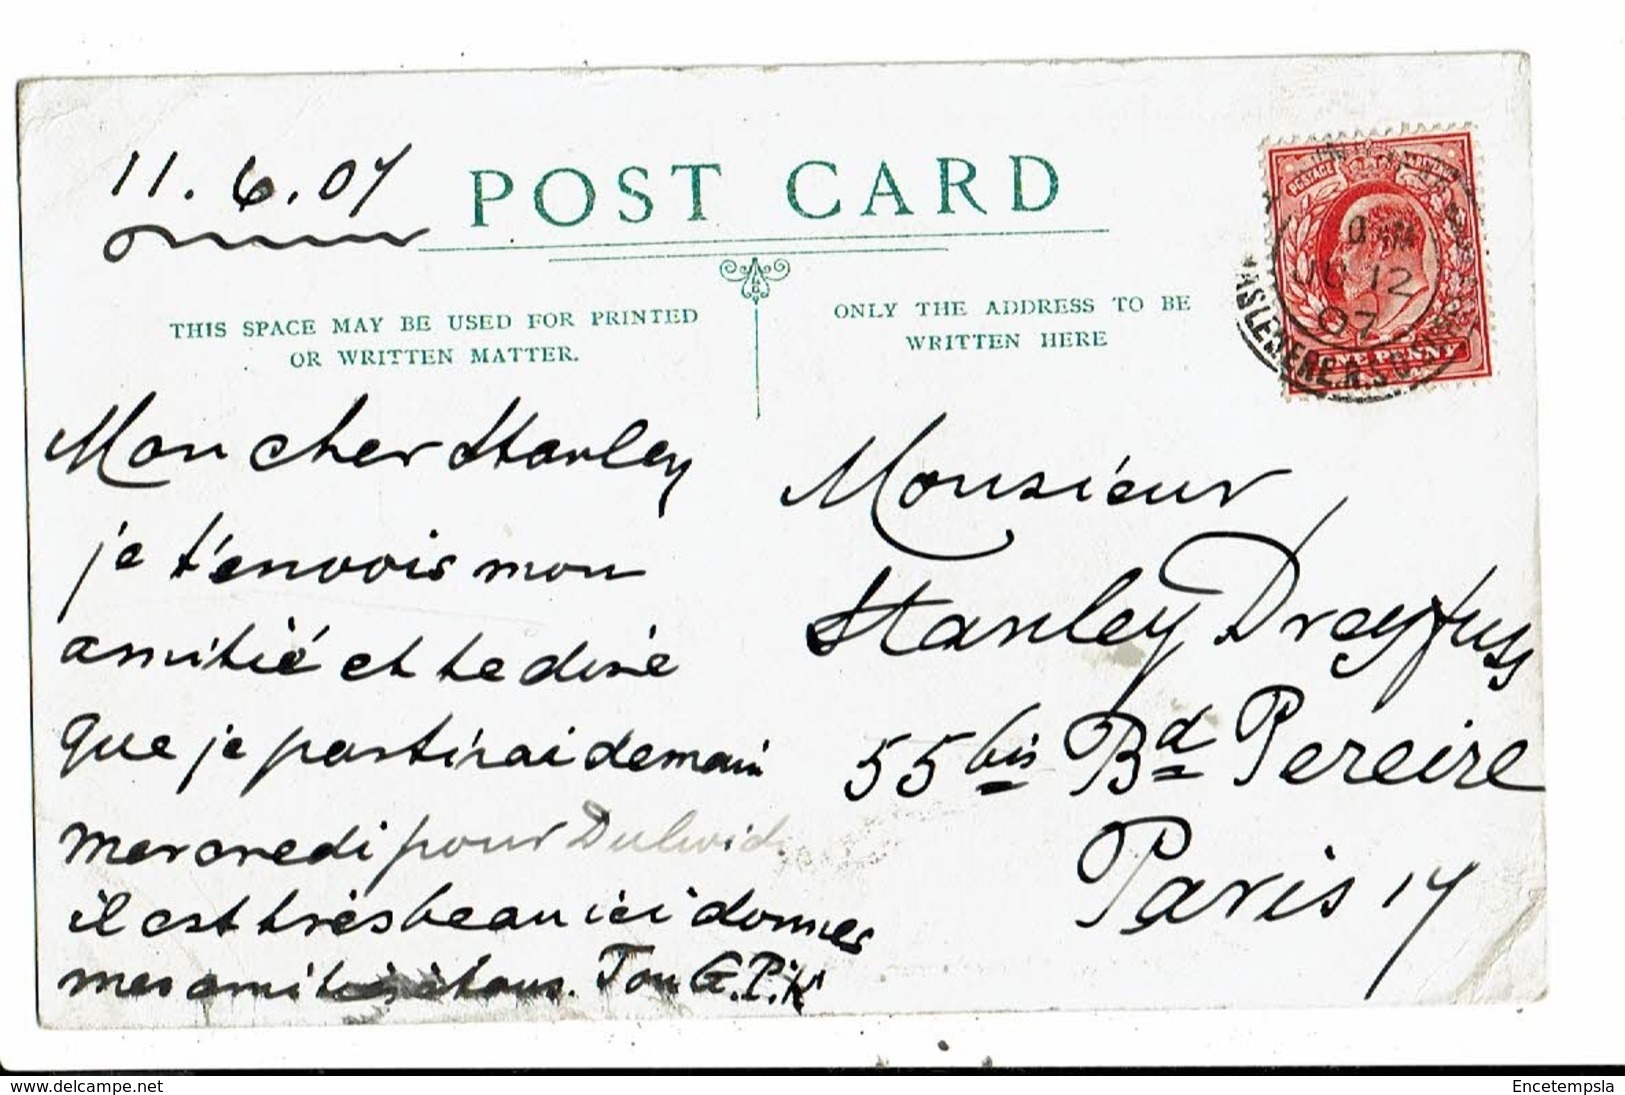 11.6.07
POST CARD
THIS SPACE MAY BE USED FOR PRINTED
OR WRITTEN MATTER.
ONLY THE ADDRESS TO BE
WRITTEN HERE
POSTAGE
JU 12
07
HASLEMERE.R.S.O.
ONE PENNY
Mon cher Stanley
je t'envois mon
amitié et te dire
que je partirai demain
mercredi pour Dulwich
il est très beau ici donnes
mes amitiés à tous. Ton G.P.K
Monsieur
Stanley Dreyfuss
55 bis Bd Pereire
Paris 17
www.delcampe.net
Encetempsla